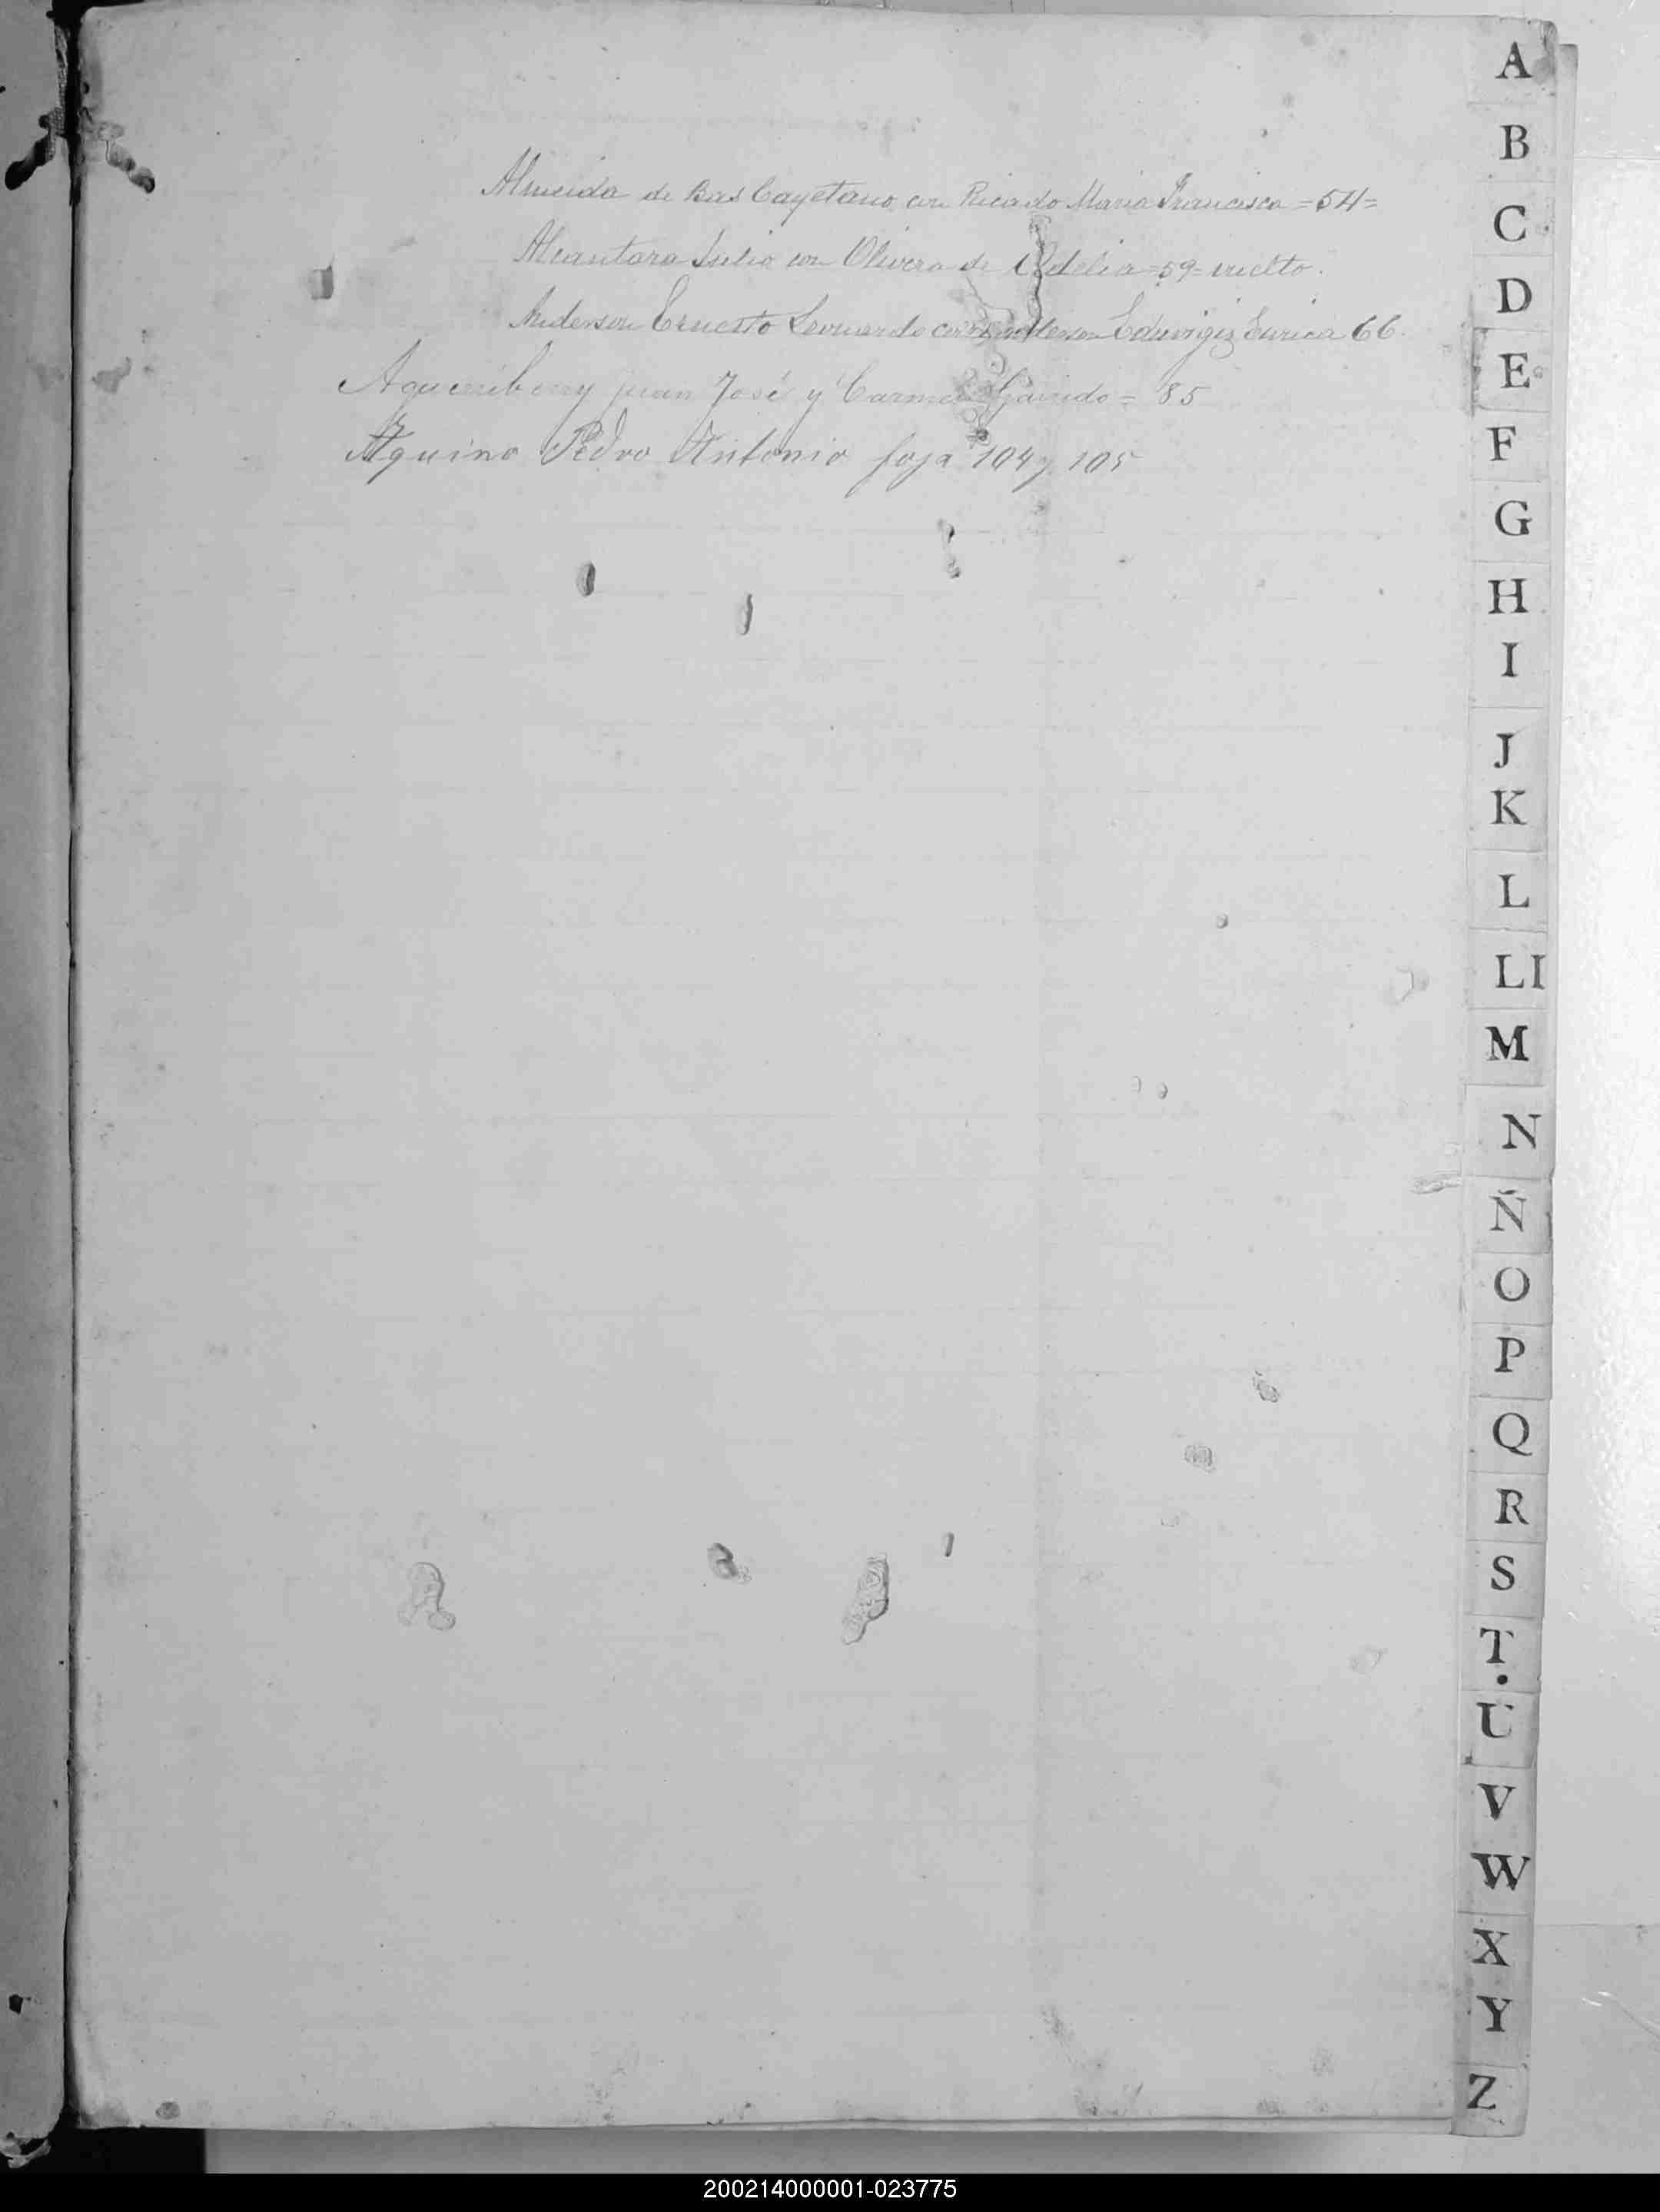 Almeida de Bas Cayetano con Ricardo Maria Francisca =54=
Alcantara Julio con Olivera de Odelia=59=vuelto.
Anderson Ernesto Leonardo con Eduvigis Enrica 66.
Juan José y Carmen Garrido = 85
Aquino Pedro Antonio foja 104 y 105
A
B
C
D
E
F
G
H
I
J
K
L
Ll
M
N
Ñ
O
P
Q
R
S
T
U
V
W
X
Y
Z
200214000001-023775